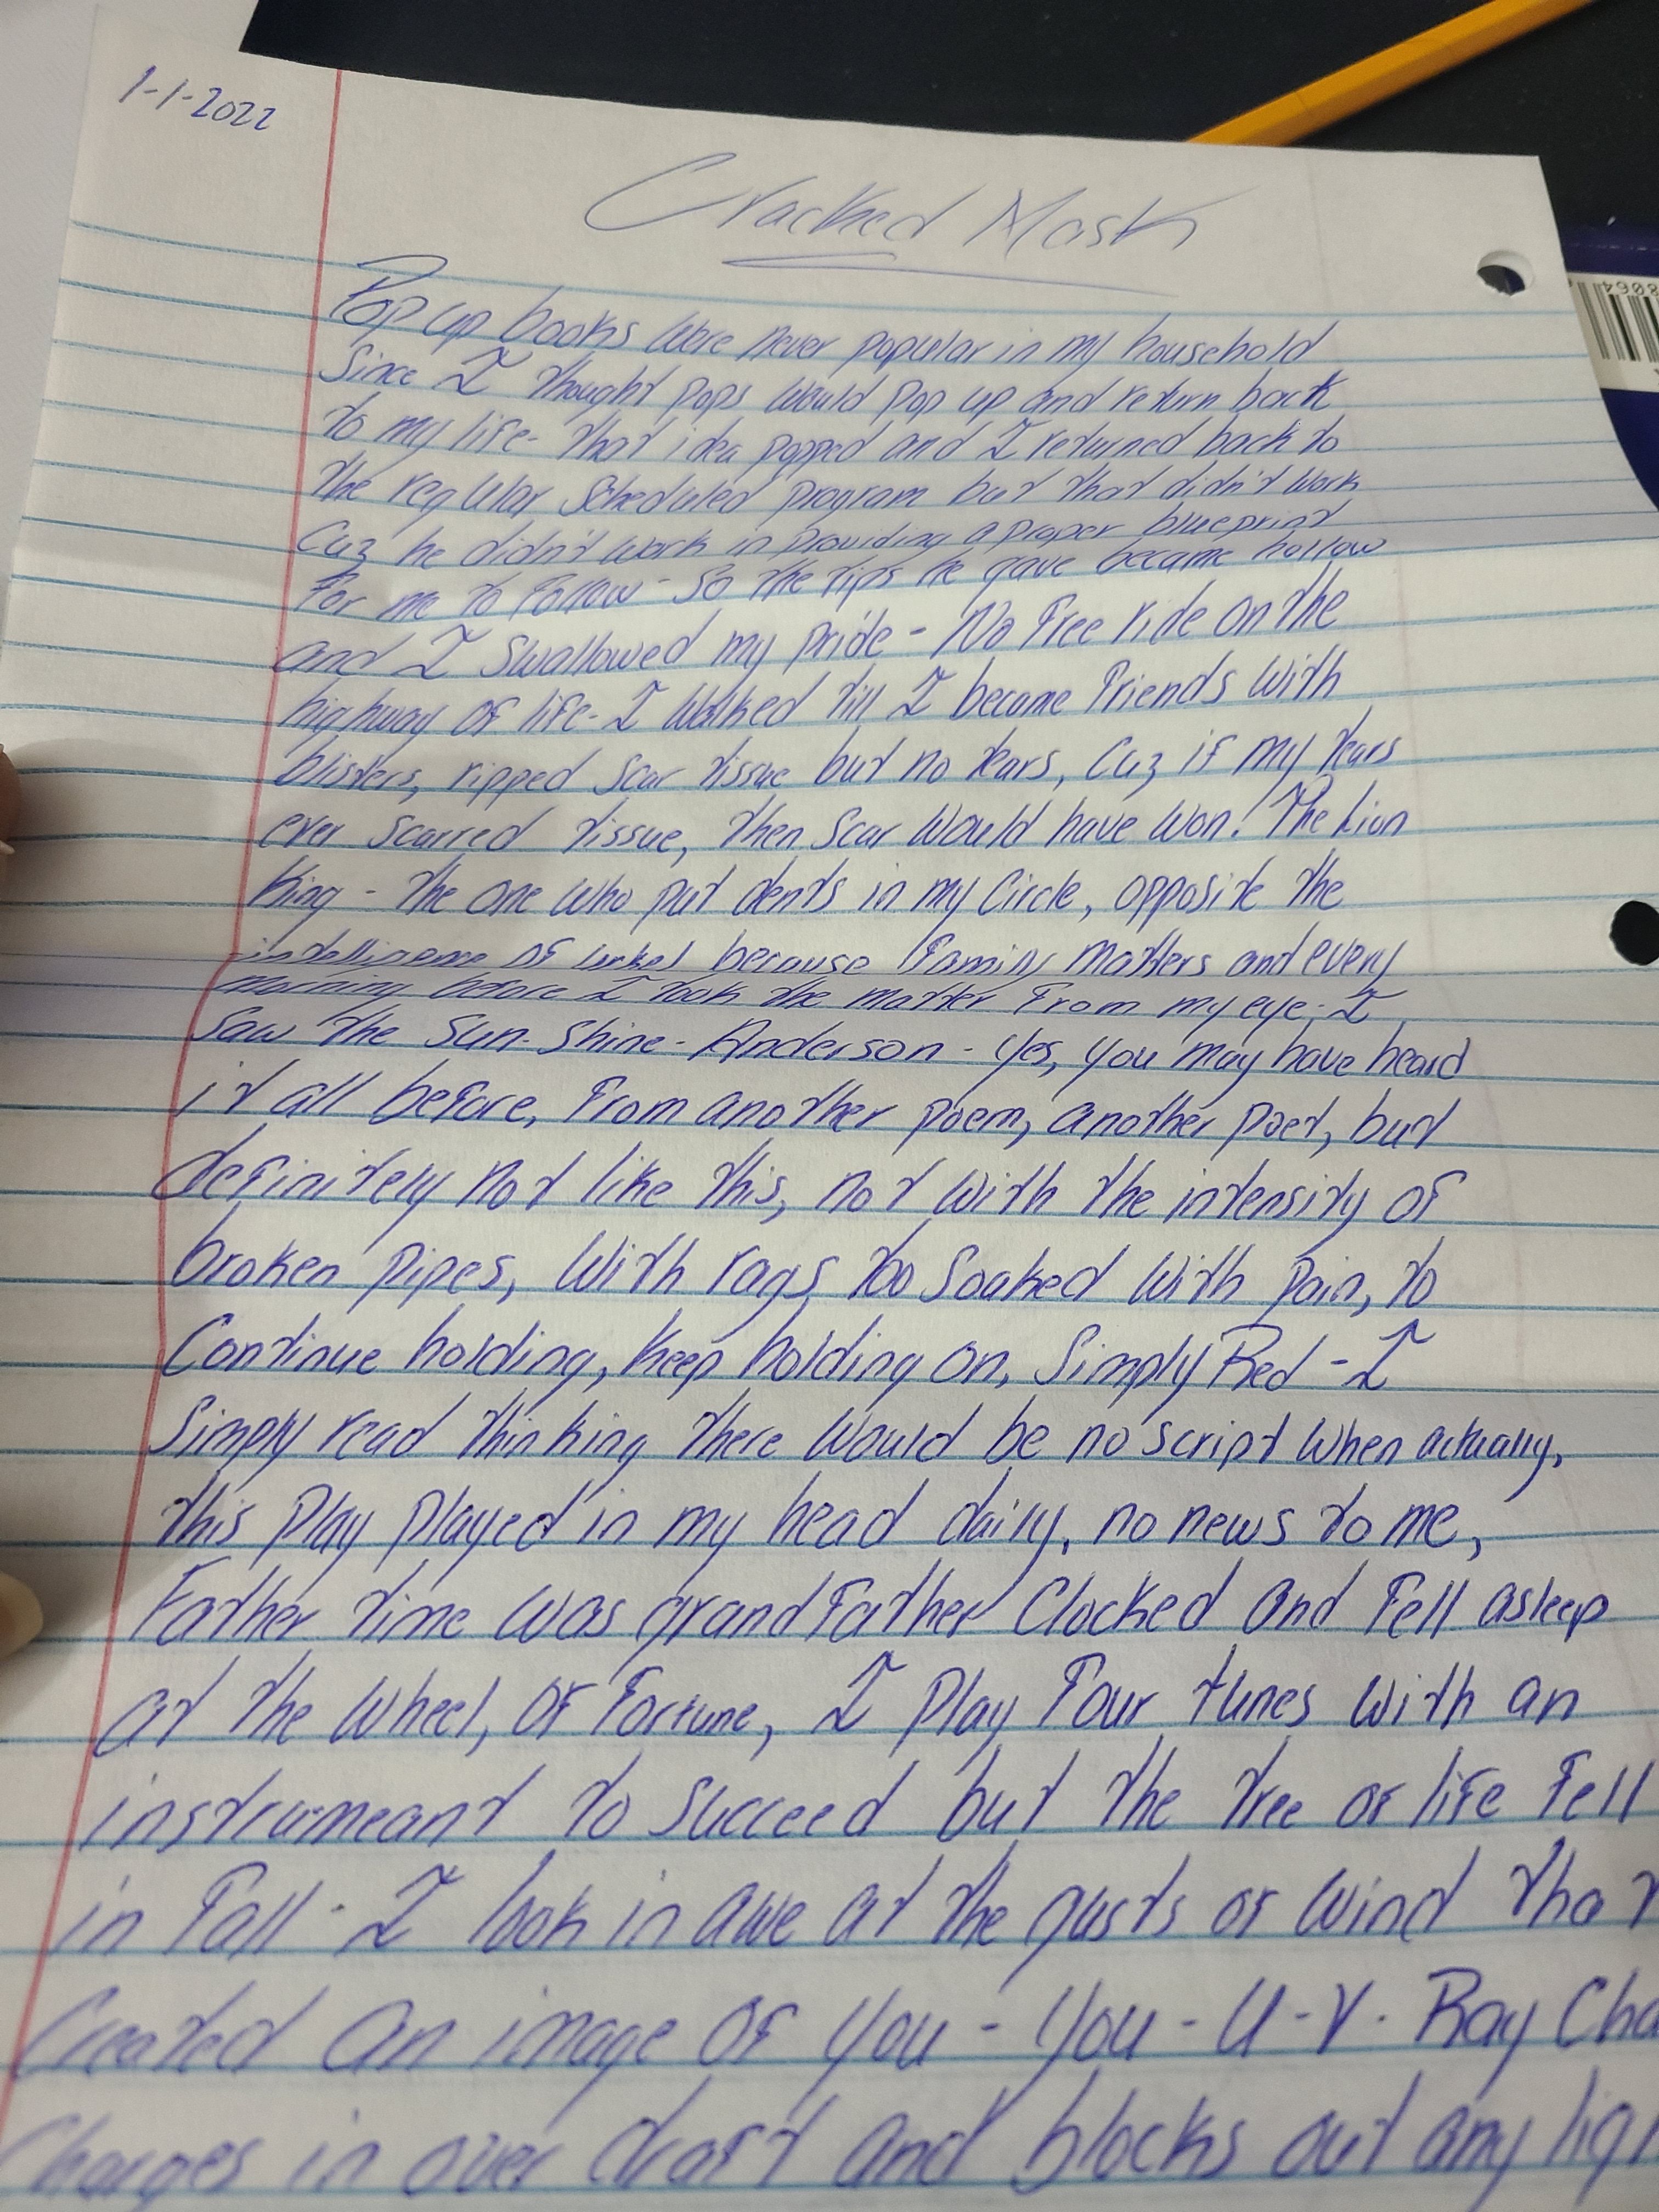 1-1-2022
Cracked Mask
Pop up books were never popular in my household
Since I thought pops would pop up and return back
to my life- that idea popped and I returned back to
the regular scheduled program but that didn't work
Cuz he didn't work in providing a proper blueprint
For me to follow - So the tips he gave became hollow
and I swallowed my pride - No Free ride on the
highway of life - I walked till I became friends with
blisters, ripped scar tissue but no tears, Cuz if my tears
ever scarred tissue, then Scar would have won! The Lion
King - the one who put dents in my Circle, opposite the
intelligence of Urkel because Family Matters and every
morning before I took the matter from my eye, I
Saw the Sun-Shine-Anderson - Yes, you may have heard
it all before, from another poem, another poet, but
definitely not like this, not with the intensity of
broken pipes, with rags too soaked with pain, to
Continue holding, keep holding on, Simply Red - I
Simply read thinking there would be no script when actually,
this play played in my head daily, no news to me,
Father time was grandfather Clocked and fell asleep
at the wheel, of Fortune, I play Four tunes with an
instrumeant to succeed but the tree of life fell
in Fall - I look in awe at the gusts of wind that
Created an image of you - you - U-V- Ray Cha
Charges in over draft and blocks out any ligh
8064